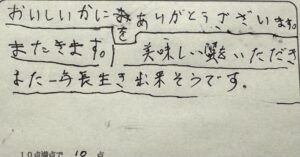 おいしいかにをありがとうございます。
またきます。美味しい蟹をいただき
また一年長生き出来そうです。
10点満点で 10 点